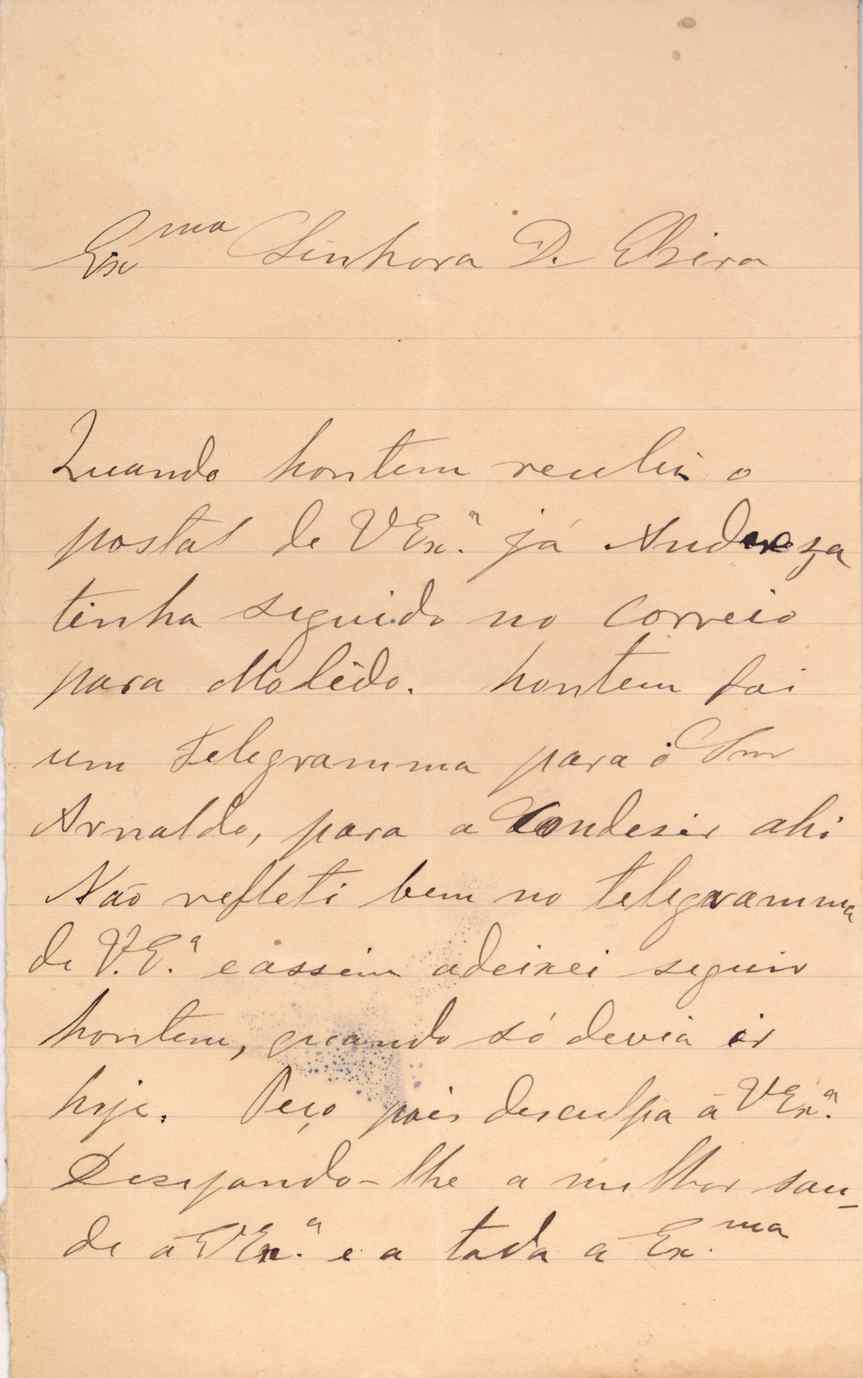 Ex.ma Senhora D. Elvira
Quando hontem recebi o
postal de V Ex.ª já Andreza
tinha seguido no correio
para Molêdo. hontem foi
um Telegramma para o Snr
Arnaldo, para a Condesir ahi
Não refleti bem no telegramma
de V.E.ª e assim adeixei seguir
hontem, quando só devia ir
hoje. Peço pois desculpa á V Ex.ª
Desejando-lhe a milhor sau-
de á V Ex.ª e a toda á Ex.ma